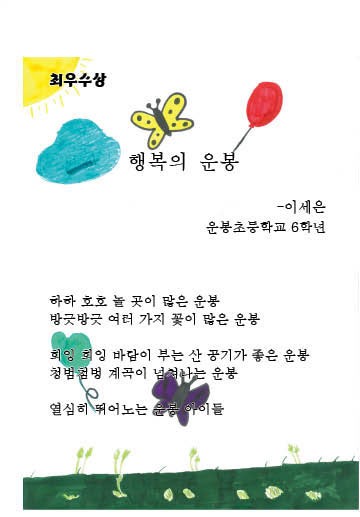 최우수상
행복의 운봉
-이세은
운봉초등학교 6학년
하하 호호 놀 곳이 많은 운봉
방긋방긋 여러 가지 꽃이 많은 운봉
희잉 희잉 바람이 부는 산 공기가 좋은 운봉
첨범첨범 계곡이 넘쳐나는 운봉
열심히 뛰어노는 운봉 아이들